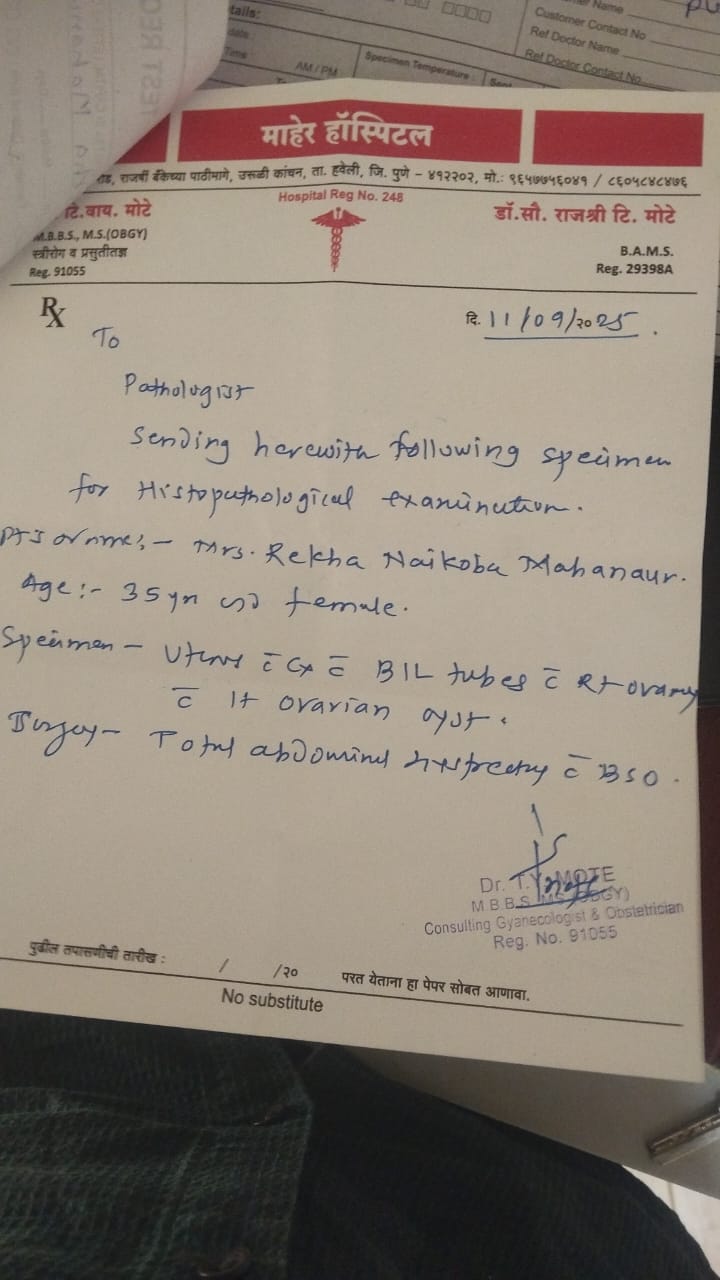 tails:
AM/PM
Specimen Temperature :
Customer Contact No
Ref Doctor Name
Ref Doctor Contact No
TEST REQ
माहेर हॉस्पिटल
रोड, राजर्षी बँकेच्या पाठीमागे, उरूळी कांचन, ता. हवेली, जि. पुणे - ४१२२०२, मो.: ९६५७७५६०४१ / ८६०५८४८४७६
Hospital Reg No. 248
टि.वाय. मोटे
M.B.B.S., M.S.(OBGY)
स्त्रीरोग व प्रसुतीतज्ञ
Reg. 91055
डॉ.सौ. राजश्री टि. मोटे
B.A.M.S.
Reg. 29398A
Rx
दि. 11/09/२०25.
To
Pathologist
Sending herewith following specimen
for Histopathological examination.
Mrs. Rekha Naikoba Mahanaur.
Age:- 35 yr female.
Specimen - Uterus c̄ Cx c̄ B/L tubes c̄ Rt ovary
c̄ lt ovarian cyst.
Total abdominal c̄ BSO.
Dr. T.Y. MOTE
M.B.B.S. MS (OBGY)
Consulting Gyanecologist & Obstetrician
Reg. No. 91055
पुढील तपासणीची तारीख : / /२०
परत येताना हा पेपर सोबत आणावा.
No substitute